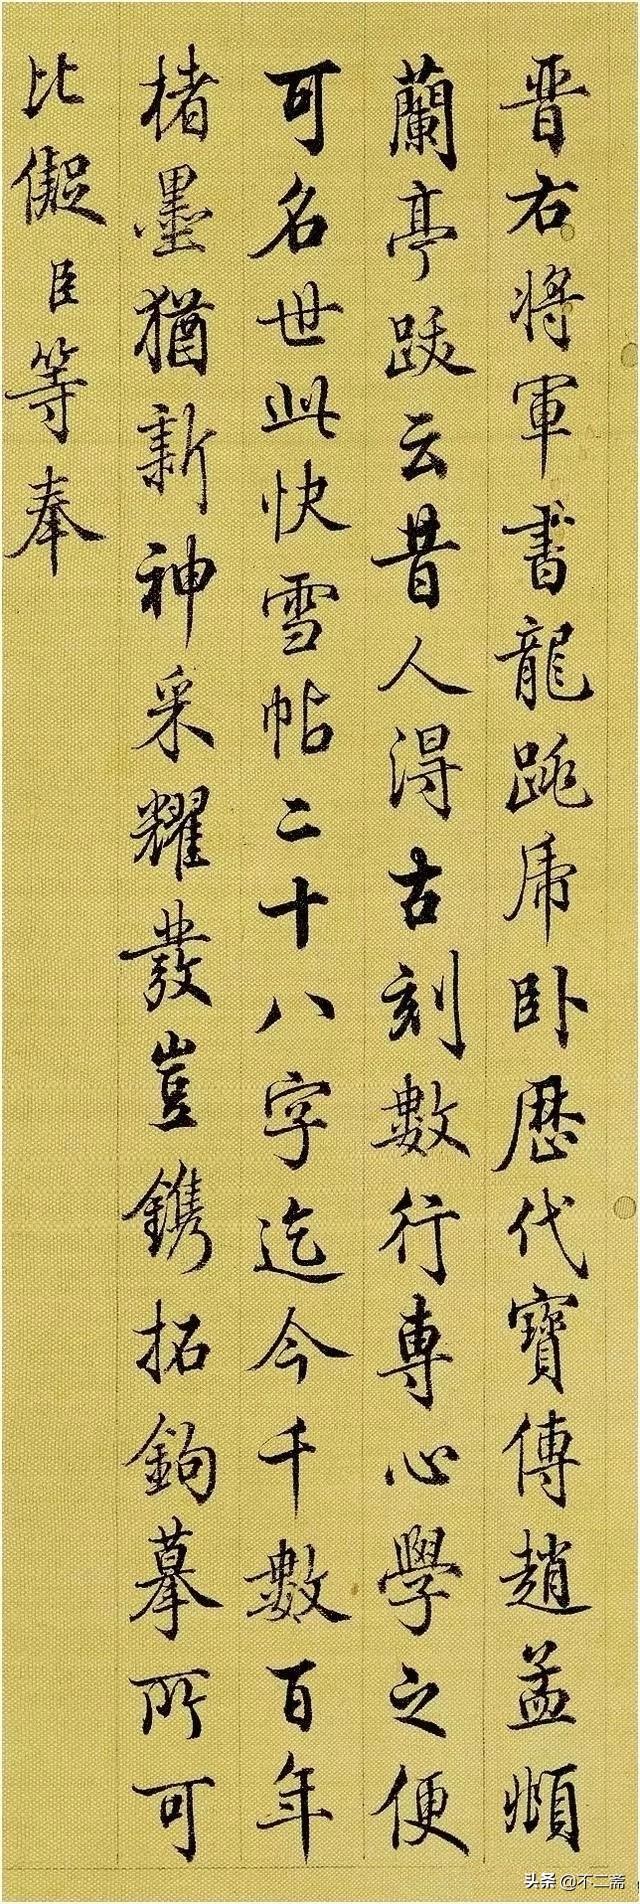 晋右將軍書龍跳虎卧歷代寶傳趙孟頫
蘭亭跋云昔人得古刻數行專心學之便
可名世此快雪帖二十八字迄今千數百年
楮墨猶新神采耀發豈鐫拓鉤摹所可
比儗臣等奉
头条 @不二斋